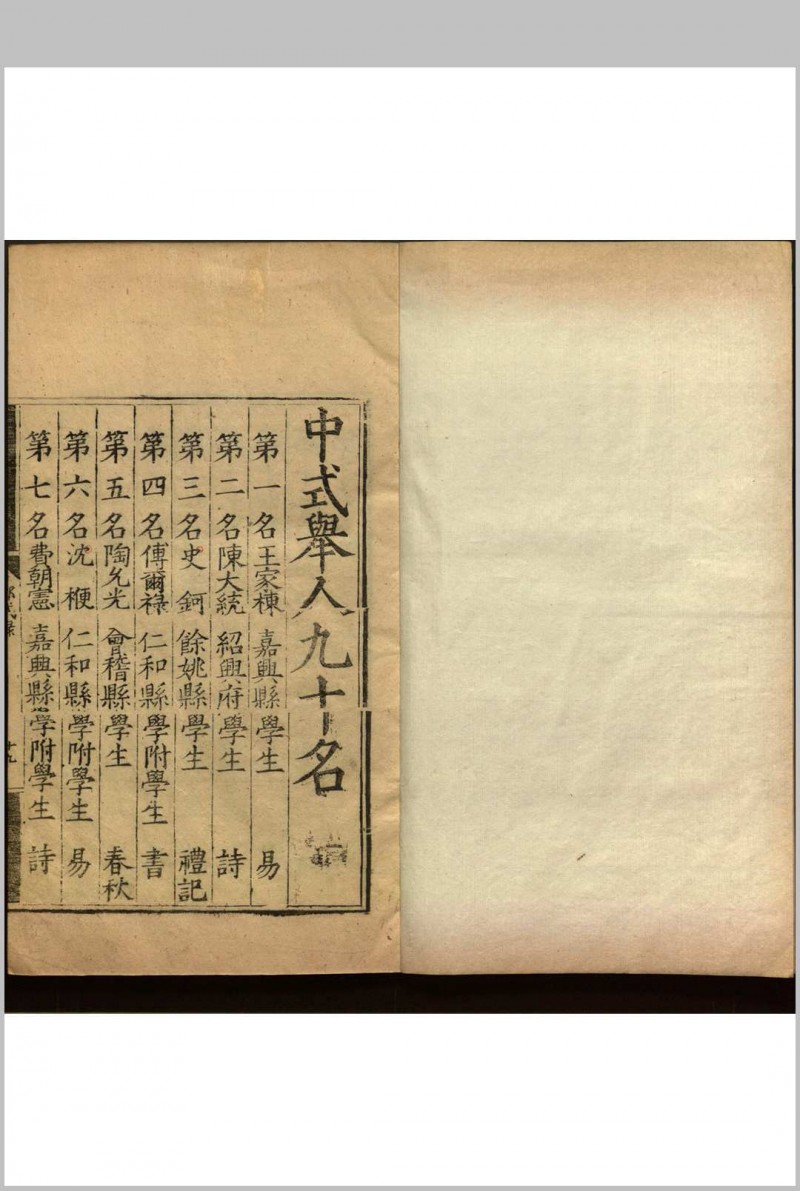 中式舉人九十名
第一名王家棟 嘉興縣學生 易
第二名陳大統 紹興府學生 詩
第三名史鈳 餘姚縣學生 禮記
第四名傅爾祿 仁和縣學附學生 書
第五名陶允光 會稽縣學生 春秋
第六名沈楩 仁和縣學附學生 易
第七名費朝憲 嘉興縣學附學生 詩
十九